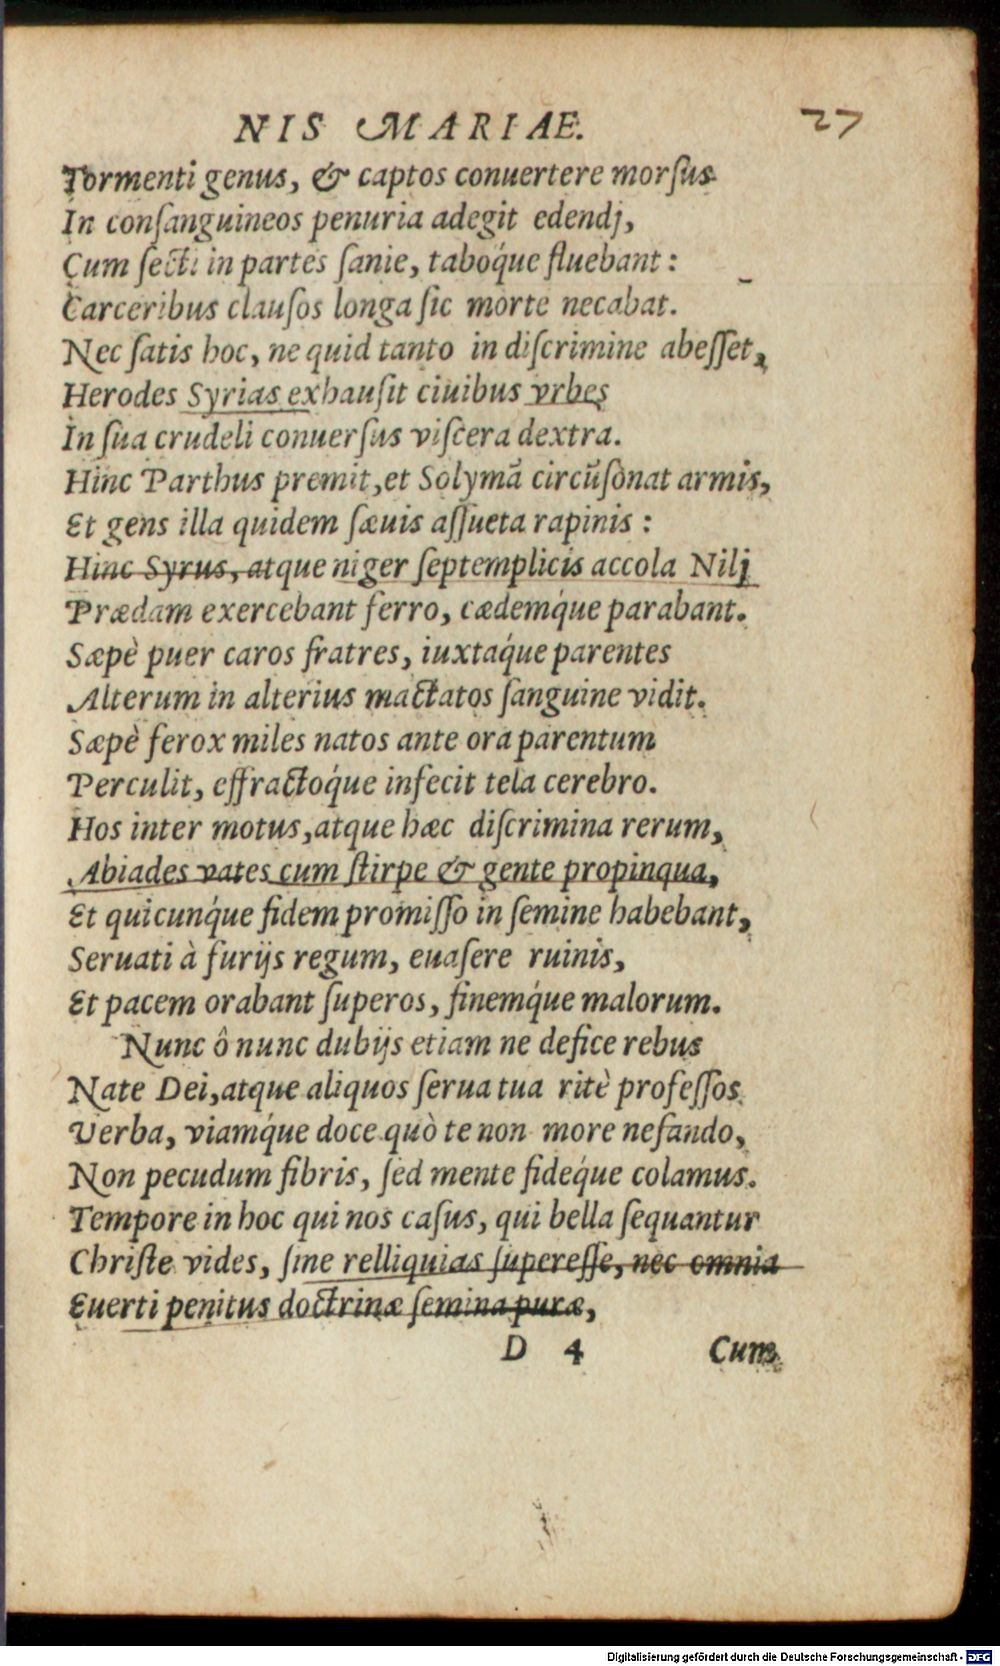 NIS MARIAE.
27
Tormenti genus, & captos conuertere morſus
In conſanguineos penuria adegit edendj,
Cum ſecti in partes ſanie, taboq́ue fluebant:
Carceribus clauſos longa ſic morte necabat.
Nec ſatis hoc, ne quid tanto in diſcrimine abeſſet,
Herodes Syrias exhauſit ciuibus vrbes
In ſua crudeli conuerſus viſcera dextra.
Hinc Parthus premit, et Solymā circūſonat armis,
Et gens illa quidem ſæuis aſſueta rapinis:
Hinc Syrus, atque niger ſeptemplicis accola Nilj
Prædam exercebant ferro, cædemq́ue parabant.
Sæpè puer caros fratres, iuxtaq́ue parentes
Alterum in alterius mactatos ſanguine vidit.
Sæpè ferox miles natos ante ora parentum
Perculit, effractoq́ue infecit tela cerebro.
Hos inter motus, atque hæc diſcrimina rerum,
Abiades vates cum ſtirpe & gente propinqua,
Et quicunq́ue fidem promiſſo in ſemine habebant,
Seruati à furijs regum, euaſere ruinis,
Et pacem orabant ſuperos, finemq́ue malorum.
Nunc ô nunc dubijs etiam ne defice rebus
Nate Dei, atque aliquos ſerua tua ritè profeſſos
Verba, viamq́ue doce quò te non more nefando,
Non pecudum fibris, ſed mente fideq́ue colamus.
Tempore in hoc qui nos caſus, qui bella ſequantur
Chriſte vides, ſine relliquias ſupereſſe, nec omnia
Euerti penitus doctrinæ ſemina puræ,
D 4 Cum
Digitalisierung gefördert durch die Deutsche Forschungsgemeinschaft - DFG